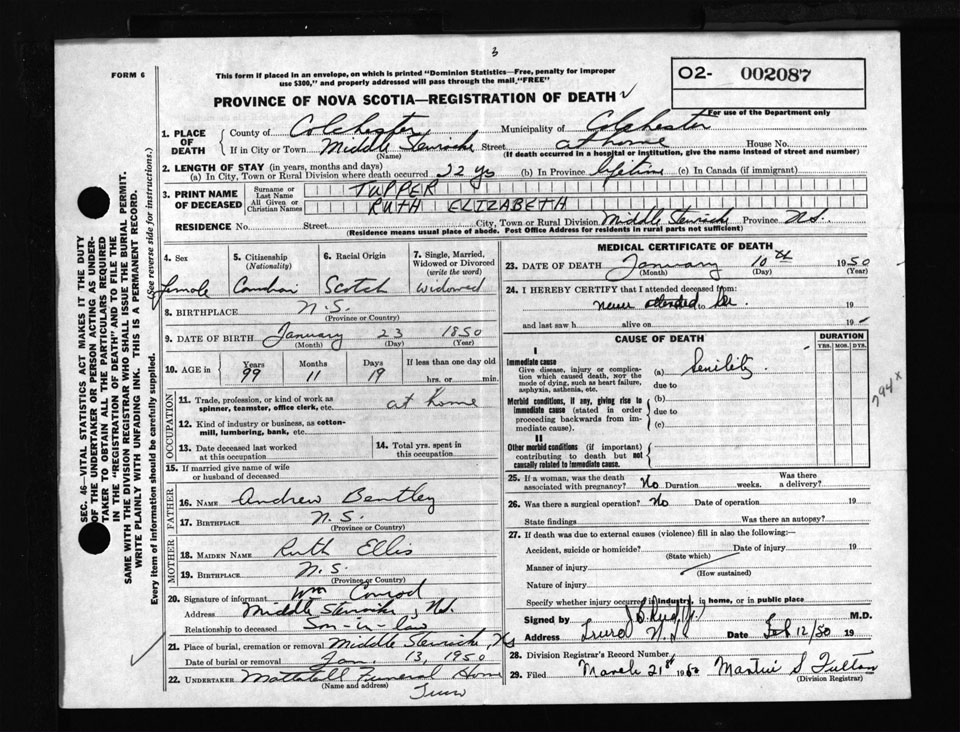 3
FORM 6
This form if placed in an envelope, on which is printed "Dominion Statistics—Free, penalty for improper
use $300," and properly addressed will pass through the mail, "FREE"
O2- 002087
PROVINCE OF NOVA SCOTIA—REGISTRATION OF DEATH ✓
For use of the Department only
1. PLACE OF DEATH
County of Colchester Municipality of Colchester
If in City or Town Middle Stewiacke Street at home House No.
(Name) (If death occurred in a hospital or institution, give the name instead of street and number)
2. LENGTH OF STAY (in years, months and days)
(a) In City, Town or Rural Division where death occurred 22 yrs (b) In Province lifetime (c) In Canada (if immigrant)
3. PRINT NAME OF DECEASED
Surname or Last Name TUPPER
All Given or Christian Names RUTH ELIZABETH
RESIDENCE No. Street City, Town or Rural Division Middle Stewiacke Province N.S.
(Residence means usual place of abode. Post Office Address for residents in rural parts not sufficient)
4. Sex female
5. Citizenship (Nationality) Canadian
6. Racial Origin Scotch
7. Single, Married, Widowed or Divorced (write the word) widowed
8. BIRTHPLACE N.S.
(Province or Country)
9. DATE OF BIRTH January 23 1850
(Month) (Day) (Year)
10. AGE in Years 99 Months 11 Days 19 If less than one day old
hrs. or min.
OCCUPATION
11. Trade, profession, or kind of work as
spinner, teamster, office clerk, etc. at home
12. Kind of industry or business, as cotton-
mill, lumbering, bank, etc.
13. Date deceased last worked
at this occupation
14. Total yrs. spent in
this occupation
15. If married give name of wife
or husband of deceased
FATHER
16. NAME Andrew Bentley
17. BIRTHPLACE N.S.
(Province or Country)
MOTHER
18. MAIDEN NAME Ruth Ellis
19. BIRTHPLACE N.S.
(Province or Country)
20. Signature of informant Wm Conrod
Address Middle Stewiacke, N.S.
Relationship to deceased Son-in-law
21. Place of burial, cremation or removal Middle Stewiacke, N.S.
Date of burial or removal Jan. 13, 1950
22. UNDERTAKER Mattatall Funeral Home
(Name and address) Truro
MEDICAL CERTIFICATE OF DEATH
23. DATE OF DEATH January 10th 1950
(Month) (Day) (Year)
24. I HEREBY CERTIFY that I attended deceased from
never attended to her 19
and last saw h alive on 19
CAUSE OF DEATH
DURATION
YRS. MOS. DYS.
I
Immediate cause
Give disease, injury or complica-
tion which caused death, NOT the
mode of dying, such as heart failure,
asphyxia, asthenia, etc.
(a) Senility.
due to
Morbid conditions, if any, giving rise to
immediate cause (stated in order
proceeding backwards from im-
mediate cause).
(b)
due to
(c)
II
Other morbid conditions (if important)
contributing to death but not
causally related to immediate cause.
794 x
25. If a woman, was the death
associated with pregnancy? No Duration weeks. Was there
a delivery?
26. Was there a surgical operation? No Date of operation 19
State findings Was there an autopsy?
27. If death was due to external causes (violence) fill in also the following:
Accident, suicide or homicide? Date of injury 19
(State which)
Manner of injury
(How sustained)
Nature of injury
Specify whether injury occurred in industry, in home, or in public place
Signed by M.D.
Address Truro N.S. Date Feb 12/50 19
28. Division Registrar's Record Number
29. Filed March 21st 1950 Martin S Fulton
(Division Registrar)
SEC. 46—VITAL STATISTICS ACT MAKES IT THE DUTY
OF THE UNDERTAKER OR PERSON ACTING AS UNDER-
TAKER TO OBTAIN ALL THE PARTICULARS REQUIRED
IN THE "REGISTRATION OF DEATH" AND TO FILE THE
SAME WITH THE DIVISION REGISTRAR WHO SHALL ISSUE THE BURIAL PERMIT.
WRITE PLAINLY WITH UNFADING INK. THIS IS A PERMANENT RECORD.
Every item of information should be carefully supplied. (See reverse side for instructions.)